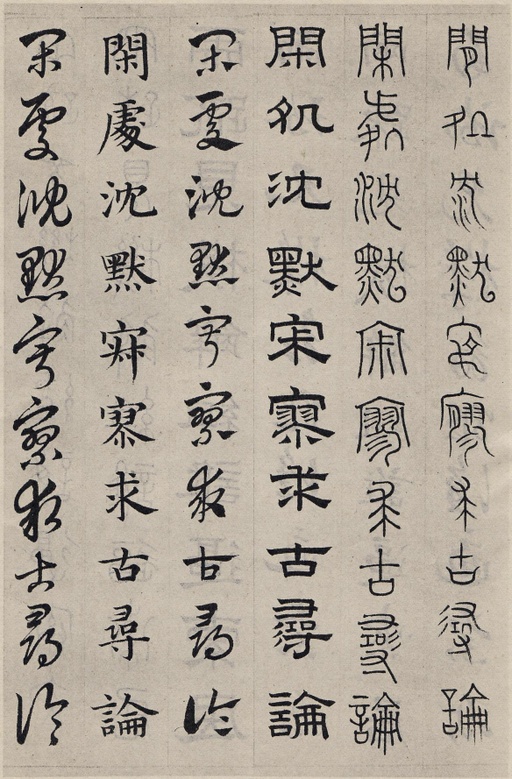 閒処沈默寂寥求古尋論
閑處沈默寂寥求古尋論
閑処沈默宋寥求古尋論
閑處沈默寂寥求古尋論
閑處沈默寂寥求古尋論
閑處沈默寂寥求古尋論